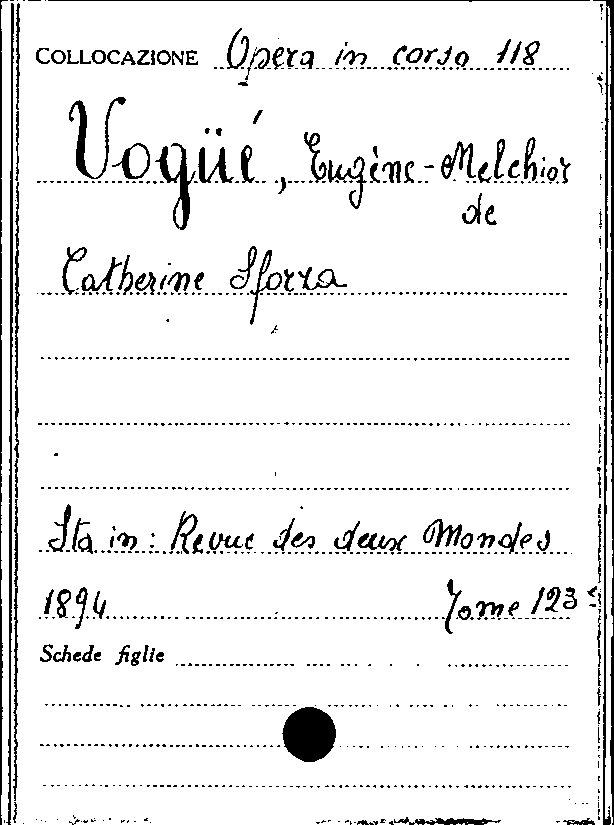 COLLOCAZIONE Opera in corso 118
Vogüé, Eugène-Melchior
de
Catherine Sforza
Sta in: Revue des deux Mondes
1894 Tome 123
Schede figlie